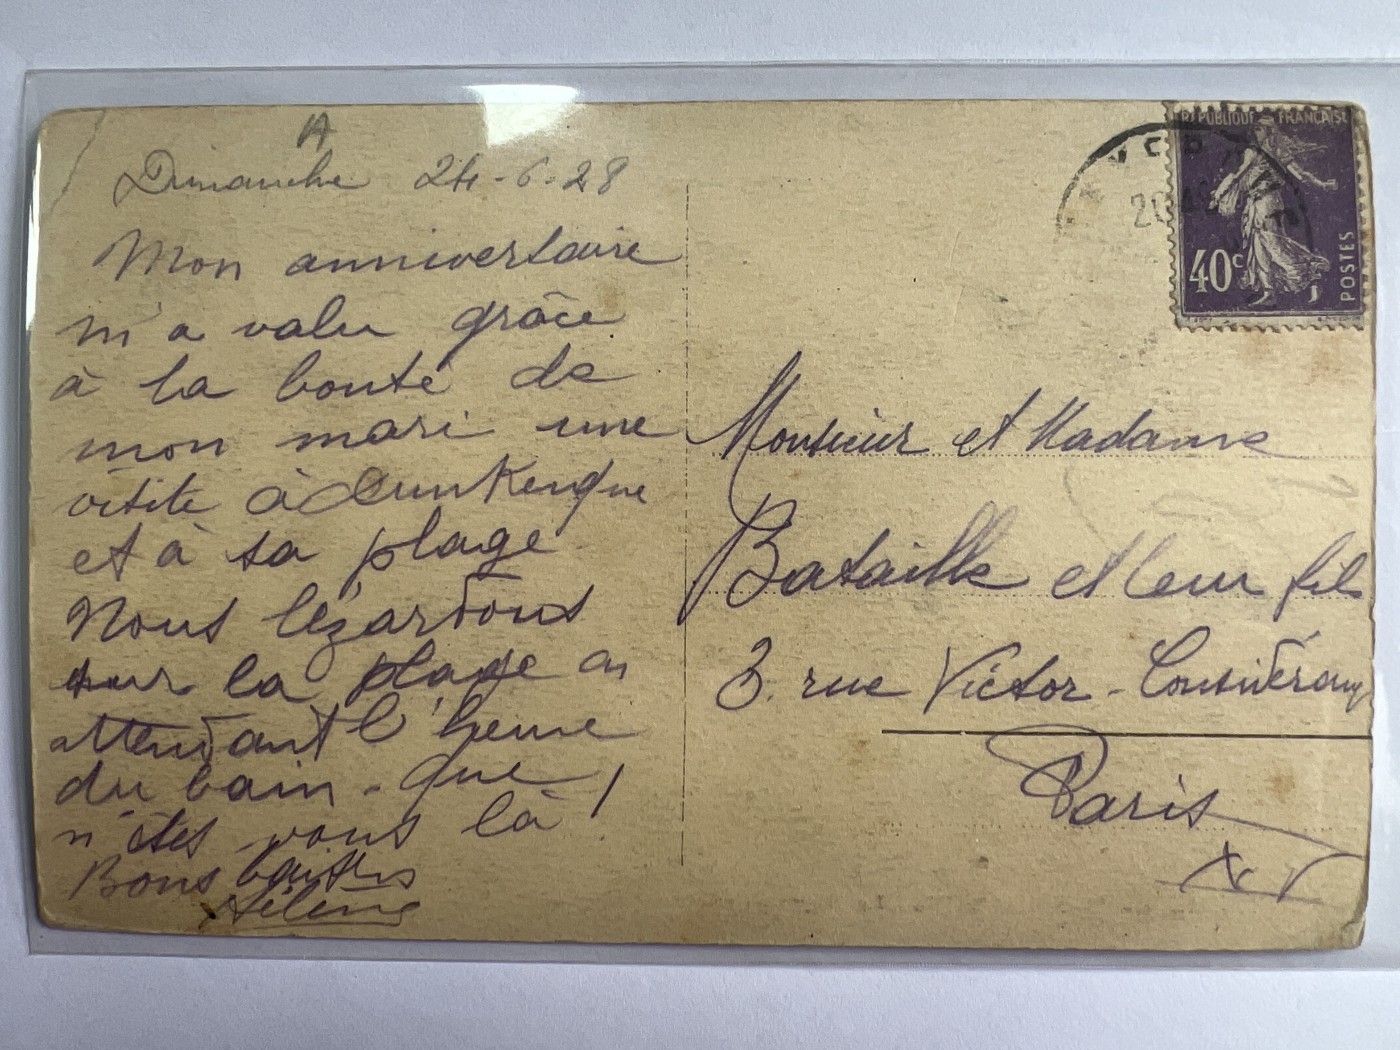 A
Dimanche 24-6-28
Mon anniversaire
m'a valu grâce
à la bonté de
mon mari une
visite à Dunkerque
et à sa plage
Nous lézardons
sur la plage en
attendant l'heure
du bain - que
n'êtes vous là !
Bons baisers
Hélène
RÉPUBLIQUE FRANÇAISE
40c
POSTES
Monsieur et Madame
Bataille et leur fils
3. rue Victor-Considérant
Paris
XIV